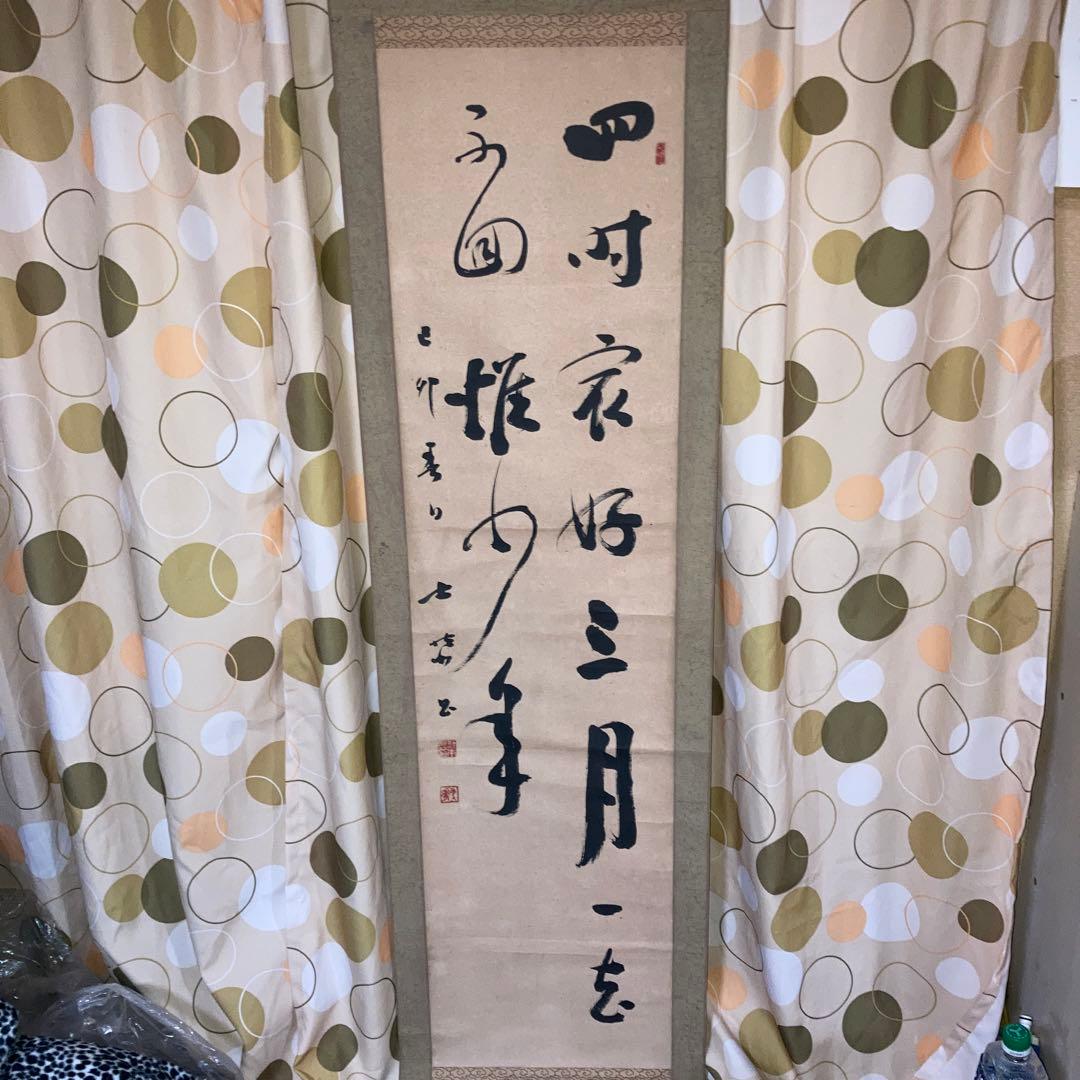 四时最好三月一去
不回惟少年
己卯春日 七
书